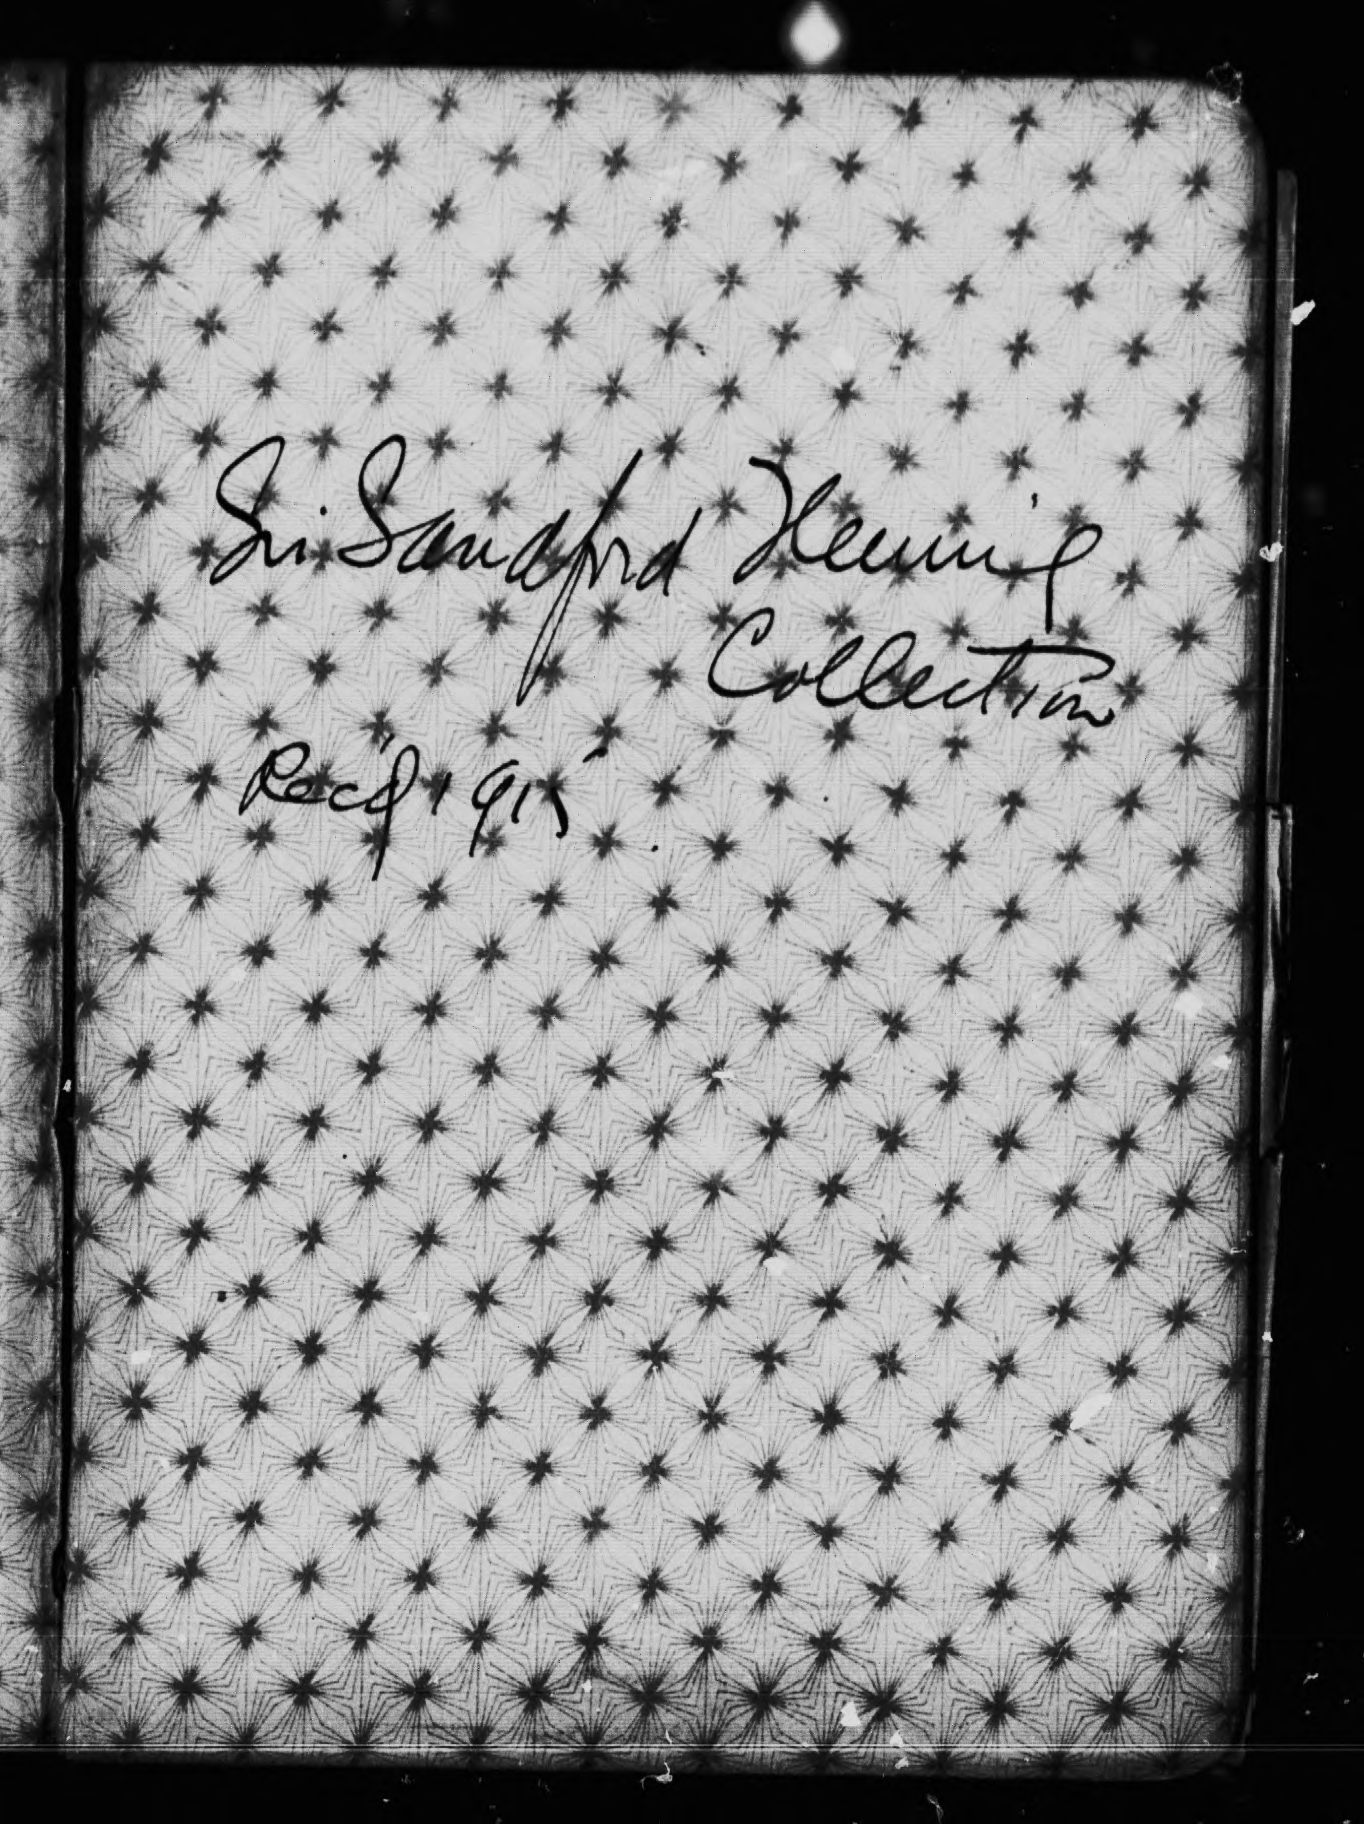 Sir Sandford Fleming
Collection
Rec'd 1915